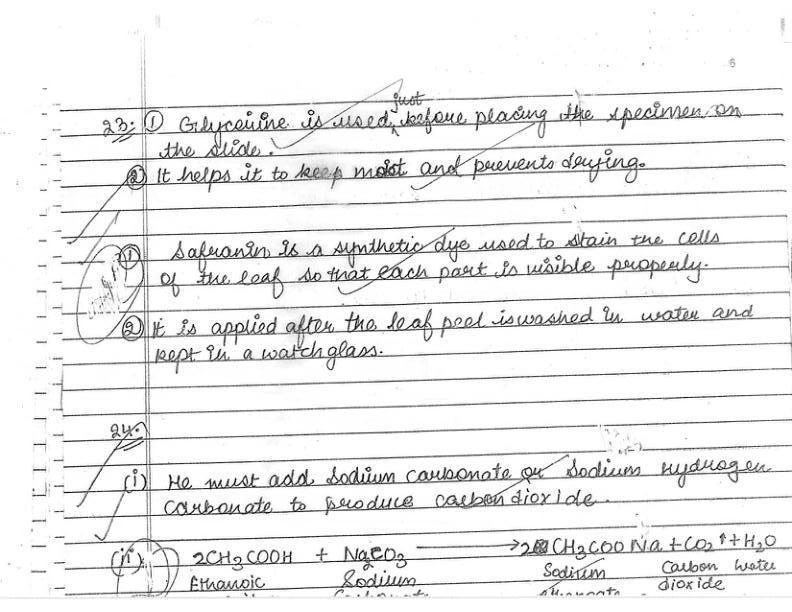 6
23. ① Glycerine is used just before placing the specimen on
the slide.
② It helps it to keep moist and prevents drying.
① Safranin is a synthetic dye used to stain the cells
of the leaf so that each part is visible properly.
② It is applied after the leaf peel is washed in water and
kept in a watch glass.
24.
(i) He must add Sodium carbonate or Sodium Hydrogen
carbonate to produce carbon dioxide.
(ii) 2CH3COOH + Na2CO3 → 2 CH3COONa + CO2↑ + H2O
Ethanoic Sodium Sodium Carbon water
dioxide